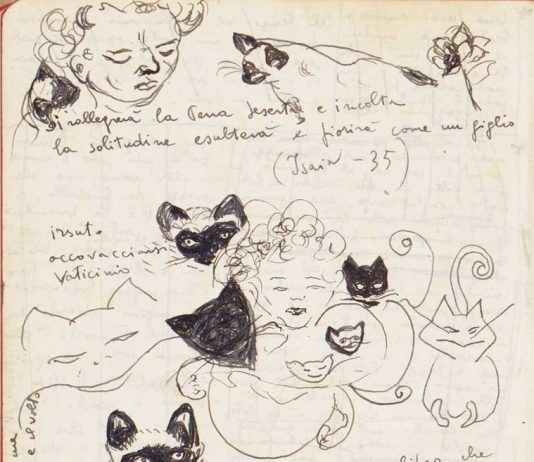 si rallegrerà la Terra deserta e incolta
la solitudine esulterà e fiorirà come un giglio
(Isaia - 35)
irsuto
accovacciarsi
vaticinio
e il volto
che